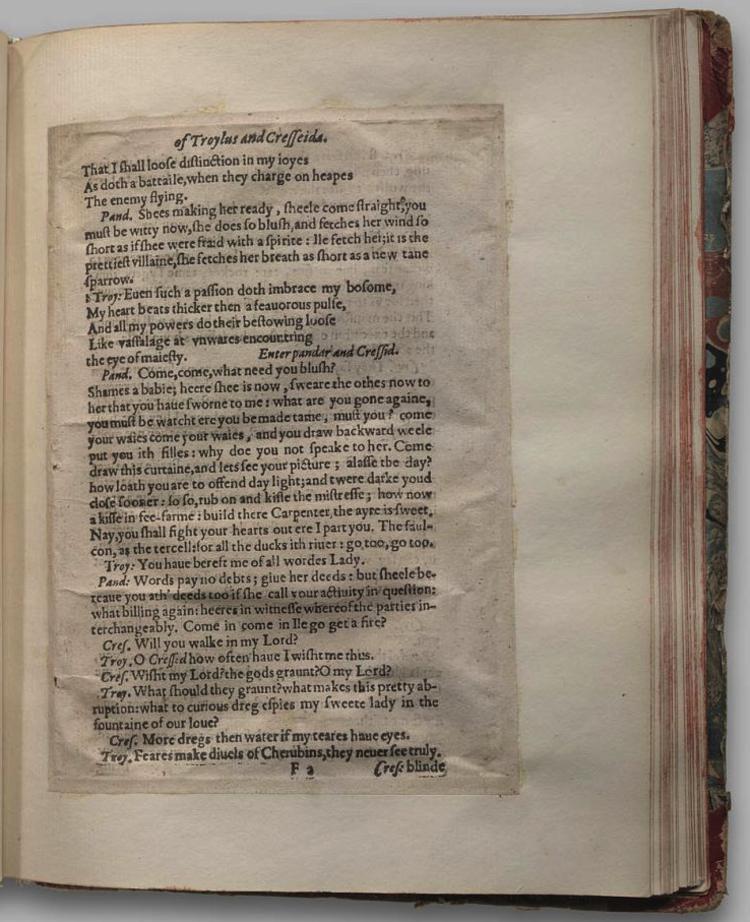 of Troylus and Cresseida.
That I shall loose distinction in my ioyes
As doth a battaile, when they charge on heapes
The enemy flying.
Pand. Shees making her ready, sheele come straight, you
must be witty now, she does so blush, and fetches her wind so
short as if shee were fraid with a spirite: Ile fetch her; it is the
prettiest villaine, she fetches her breath as short as a new tane
sparrow.
Troy: Euen such a passion doth imbrace my bosome,
My heart beats thicker then a feauorous pulse,
And all my powers do their bestowing loose
Like vassalage at vnwares encountring
the eye of maiesty. Enter pandar and Cressid.
Pand. Come, come, what need you blush?
Shames a babie; heere shee is now, sweare the othes now to
her that you haue sworne to me: what are you gone againe,
you must be watcht ere you be made tame, must you? come
your waies come your waies, and you draw backward weele
put you ith filles: why doe you not speake to her. Come
draw this curtaine, and lets see your picture; alasse the day?
how loath you are to offend day light; and twere darke youd
close sooner: so so, rub on and kisse the mistresse; how now
a kisse in fee-farme: build there Carpenter, the ayre is sweet.
Nay, you shall fight your hearts out ere I part you. The faul-
con, as the tercell: for all the ducks ith riuer: go too, go too.
Troy: You haue bereft me of all wordes Lady.
Pand: Words pay no debts; giue her deeds: but sheele be-
reaue you ath' deeds too if she call your actiuity in question:
what billing again: heeres in witnesse whereof the parties in-
terchangeably. Come in come in Ile go get a fire?
Cres. Will you walke in my Lord?
Troy. O Cressed how often haue I wisht me thus.
Cres. Wisht my Lord? the gods graunt? O my Lord?
Troy. What should they graunt? what makes this pretty ab-
ruption: what to curious dreg espies my sweete lady in the
fountaine of our loue?
Cres. More dregs then water if my teares haue eyes.
Troy. Feares make diuels of Cherubins, they neuer see truly.
F 2 Cres: blinde